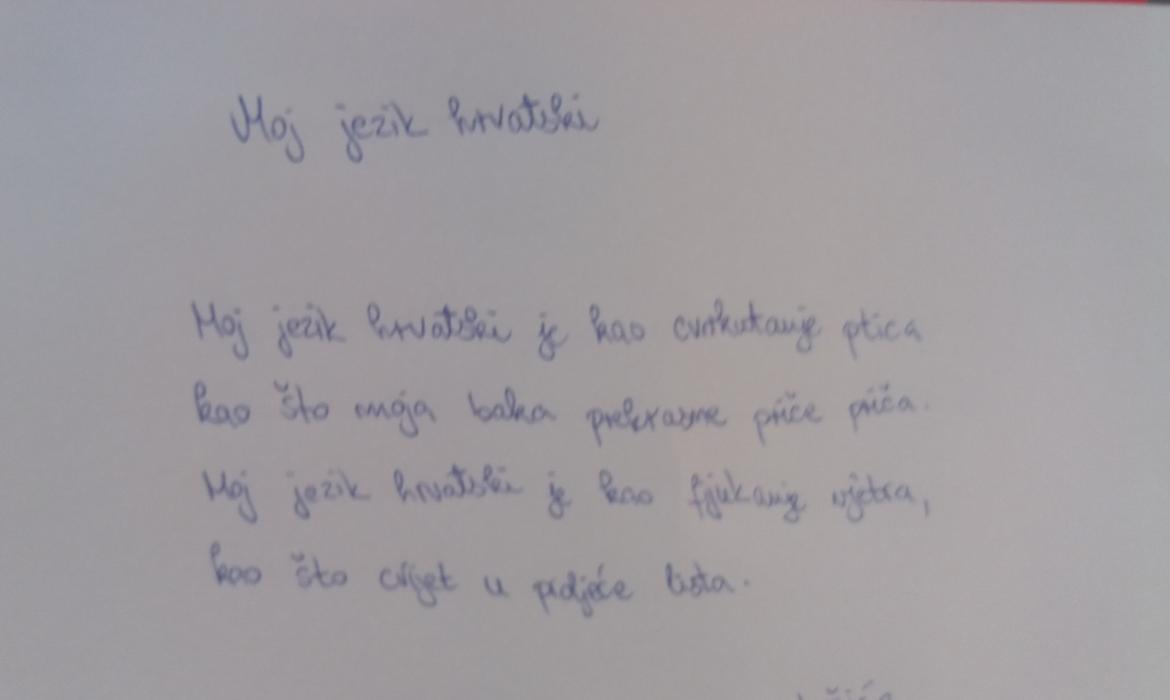 Moj jezik hrvatski
Moj jezik hrvatski je kao cvrkutanje ptica
kao što moja baka prekrasne priče priča.
Moj jezik hrvatski je kao fjukanje vjetra,
kao što cvijet u proljeće lista.